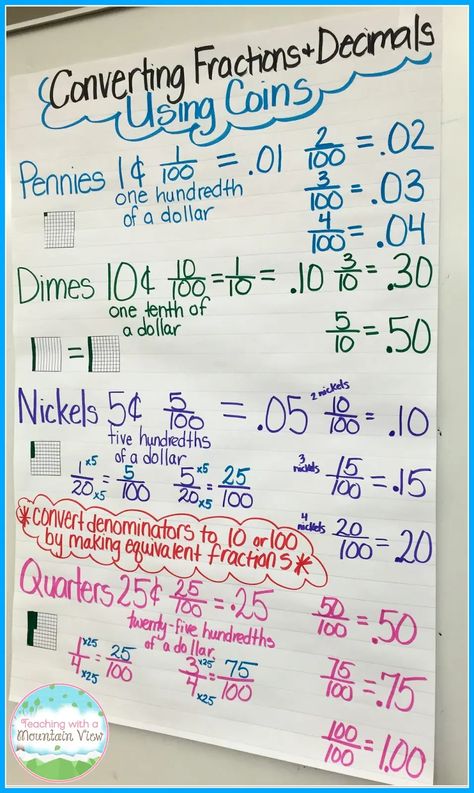 Converting Fractions + Decimals
Using Coins
Pennies 1¢ 1/100 = .01
one hundredth
of a dollar
2/100 = .02
3/100 = .03
4/100 = .04
Dimes 10¢ 10/100 = 1/10 = .10
one tenth of
a dollar
3/10 = .30
5/10 = .50
=
Nickels 5¢ 5/100 = .05
five hundredths
of a dollar
1/20 x5 x5 = 5/100
5/20 x5 x5 = 25/100
2 nickels 10/100 = .10
3 nickels 15/100 = .15
4 nickels 20/100 = .20
*convert denominators to 10 or 100
by making equivalent fractions*
Quarters 25¢ 25/100 = .25
twenty-five hundredths
of a dollar
1/4 x25 x25 = 25/100
3/4 x25 x25 = 75/100
50/100 = .50
75/100 = .75
100/100 = 1.00
Teaching with a
Mountain View